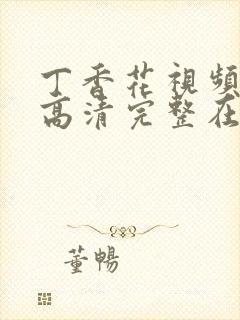 丁香花視頻
高清完整在
董暢